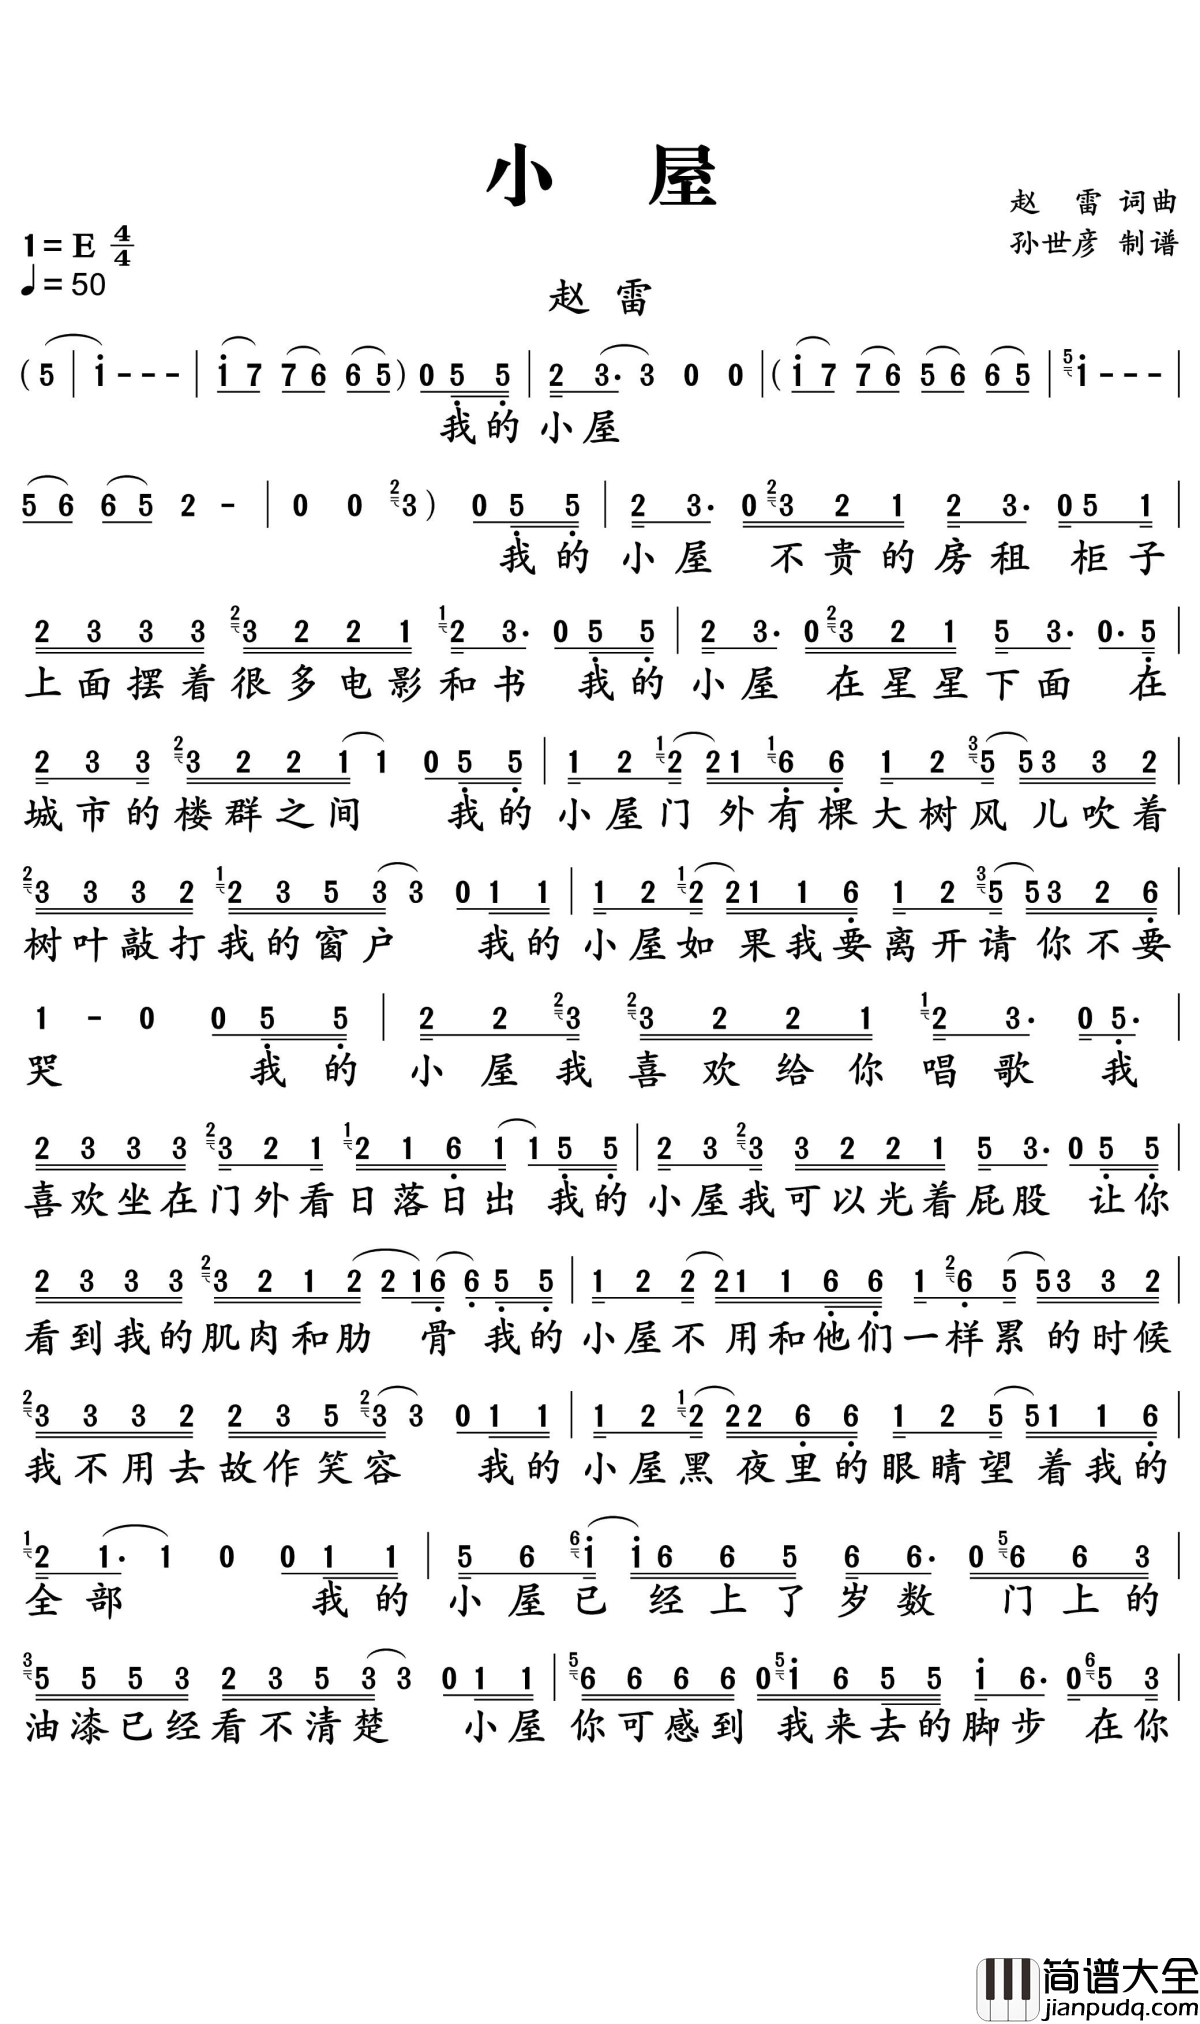 小 屋
赵 雷 词曲
1=E 4/4
孙世彦 制谱
♩=50
赵 雷
(5 | i - - - | i 7 7 6 6 5) 0 5 5 | 2 3· 3 0 0 | (i 7 7 6 5 6 6 5 | 5 i - - - |
我的 小屋
5 6 6 5 2 - | 0 0 2 3) 0 5 5 | 2 3· 0 2 3 2 1 2 3· 0 5 1 |
我的 小屋 不贵的房租 柜子
2 3 3 3 2 3 2 2 1 1 2 3· 0 5 5 | 2 3· 0 2 3 2 1 5 3· 0· 5 |
上面摆着很多电影和书 我的 小屋 在星星下面 在
2 3 3 2 3 2 2 1 1 0 5 5 | 1 2 1 2 2 1 1 6 6 1 2 3 5 5 3 3 2 |
城市的楼群之间 我的 小屋门 外有棵大树风 儿吹着
2 3 3 3 2 1 2 3 5 3 3 0 1 1 | 1 2 1 2 2 1 1 6 1 2 3 5 5 3 2 6 |
树叶敲打我的窗户 我的 小屋如 果我要离开请 你不要
1 - 0 0 5 5 | 2 2 2 3 2 3 2 2 1 1 2 3· 0 5· |
哭 我的 小屋我喜欢给你唱歌 我
2 3 3 3 2 3 2 1 1 2 1 6 1 1 5 5 | 2 3 2 3 3 2 2 1 5 3· 0 5 5 |
喜欢坐在门外看日落日出 我的 小屋我可以光着屁股 让你
2 3 3 3 2 3 2 1 2 2 1 6 6 5 5 | 1 2 2 2 1 1 6 6 1 2 6 5 5 3 3 2 |
看到我的肌肉和肋 骨 我的 小屋不 用和他们一样累 的时候
2 3 3 3 2 2 3 5 2 3 3 0 1 1 | 1 2 1 2 2 2 6 6 1 2 5 5 1 1 6 |
我不用去故作笑容 我的 小屋黑 夜里的眼睛望 着我的
1 2 1· 1 0 0 1 1 | 5 6 6 i i 6 6 5 6 6· 0 5 6 6 3 |
全部 我的 小屋已 经上了岁数 门上的
3 5 5 5 3 2 3 5 3 3 0 1 1 | 5 6 6 6 6 0 5 i 6 5 5 i 6· 0 6 5 3 |
油漆已经看不清楚 小屋 你可感到 我来去的脚步 在你
简谱大全
jianpudq.com